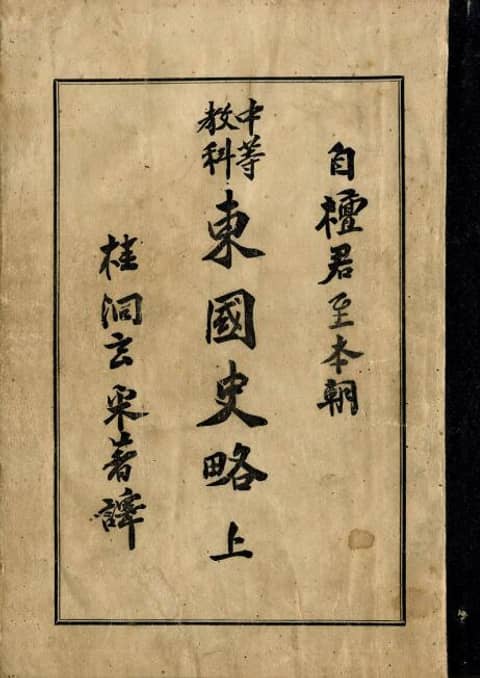 自檀君至本朝
中等
教科
東國史略 上
桂洞玄采著譯